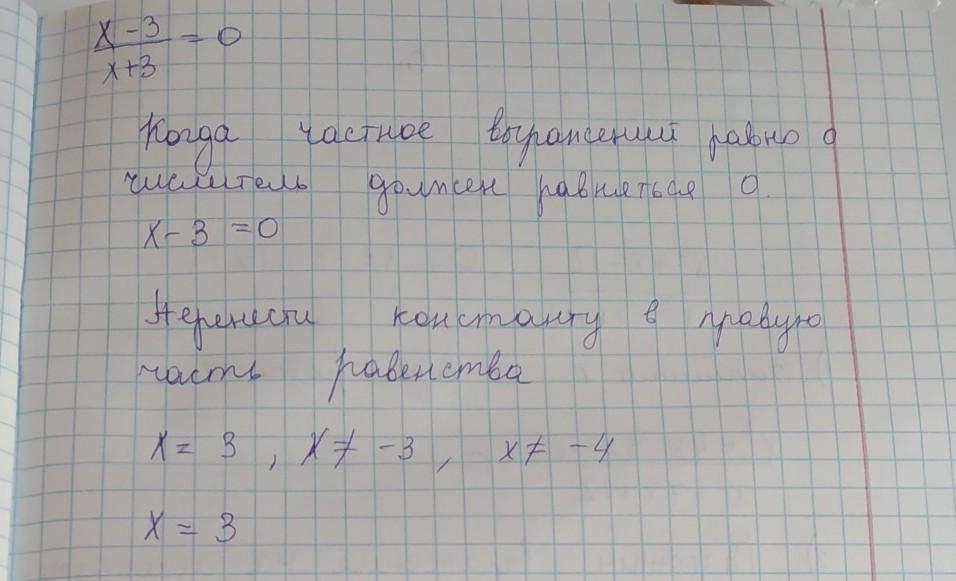 x-3/x+3 = 0
Когда частное выражений равно 0
числитель должен равняться 0.
x-3 =0
Перенести константу в правую
часть равенства
x= 3 , x≠ -3 , x≠ -4
x = 3